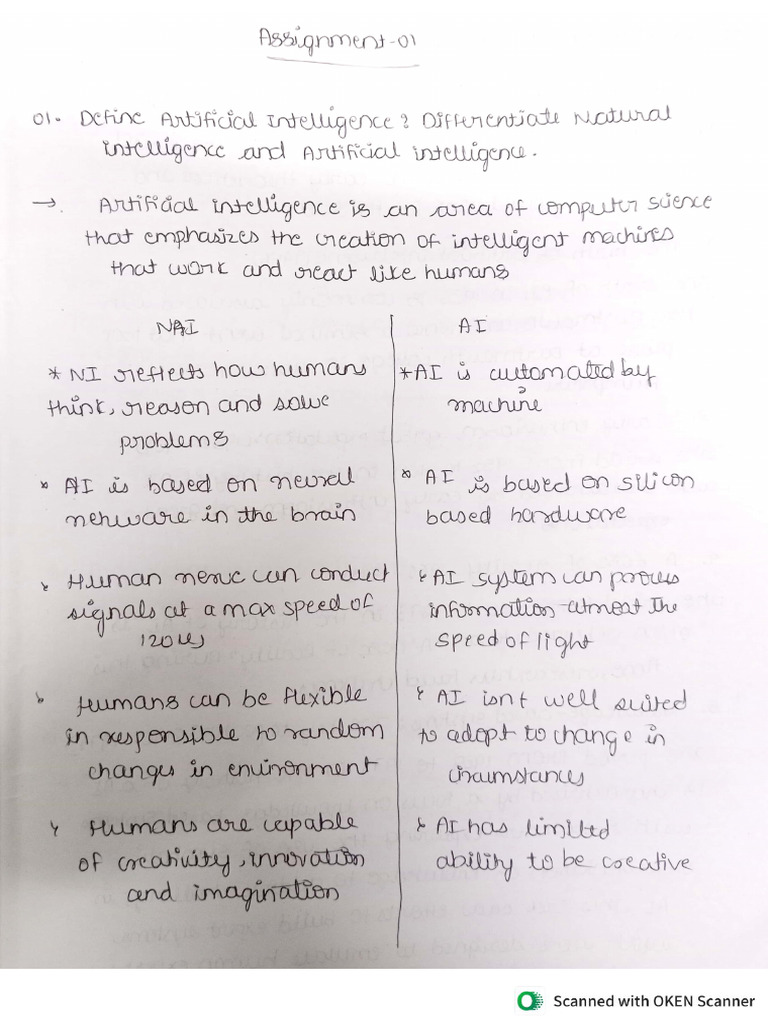 Assignment-01
01. Define Artificial Intelligence? Differentiate Natural
intelligence and Artificial intelligence.
→. Artificial intelligence is an area of computer science
that emphasizes the creation of intelligent machines
that work and react like humans
NAI
* NI reflects how humans
think, reason and solve
problems
* AI is based on neural
in the brain
* Human nerve can conduct
signals at a max speed of
* Humans can be flexible
in responsible to random
changes in environment
* Humans are capable
of creativity, innovation
and imagination
AI
* AI is automated by
machine
* AI is based on silicon
based hardware
* AI system can process
information atmost the
speed of light
* AI isnt well suited
to adopt to change in
circumstances
* AI has limited
ability to be creative
Scanned with OKEN Scanner